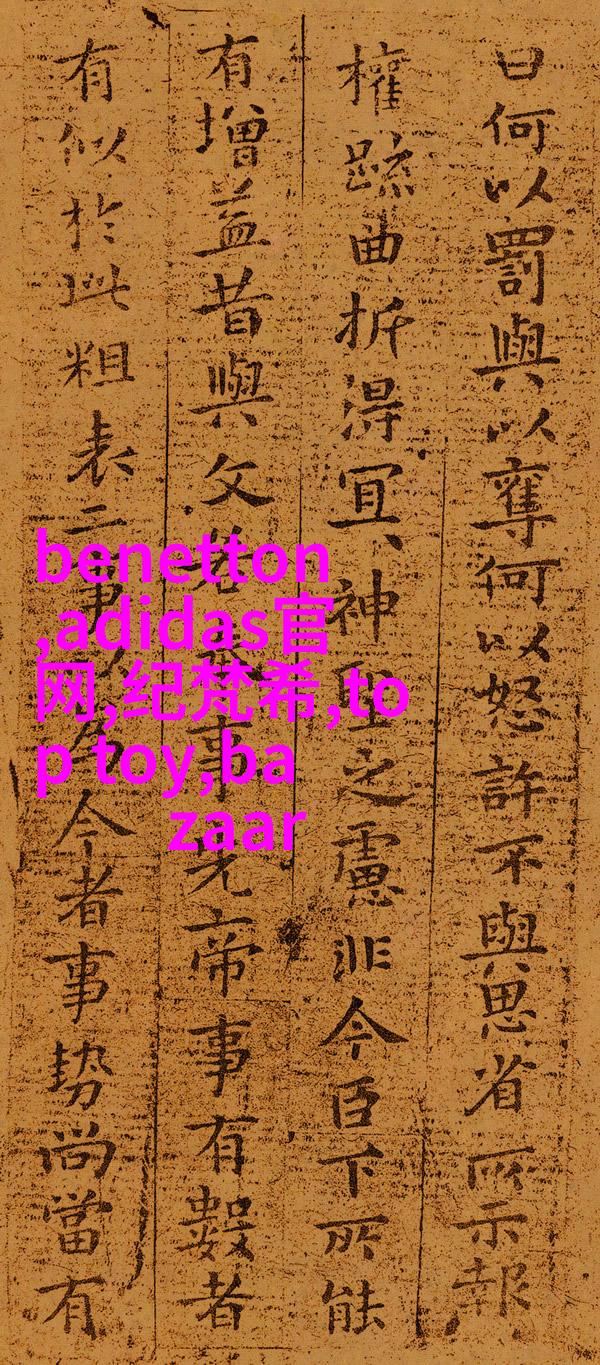 曰何以罰與以奪何以怒許不與思省所示報
權踈曲折得冝〻神聖之慮非今臣下所能
有增益昔與文若奉事先帝事有數者
有似於此粗表二事以為今者事勢尚當有
benetton
,adidas官
网,纪梵希,to
p toy,ba
zaar